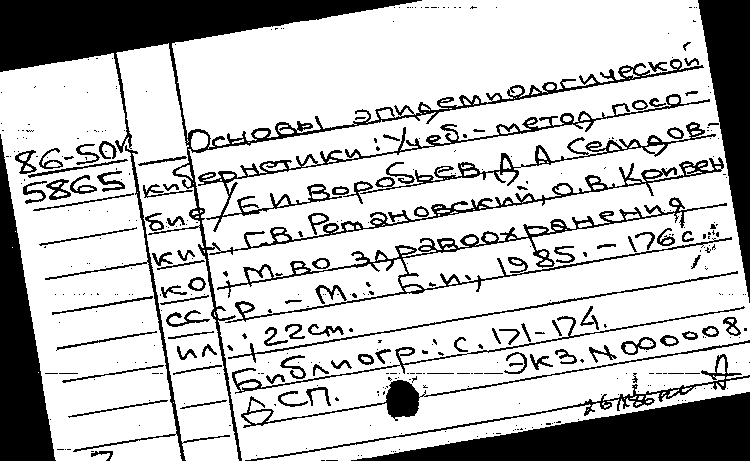 Основы эпидемиологической
86-50К
кибернетики: Учеб.-метод. посо-
5865
бие / Е.И. Воробьев, Д.А. Селидов-
кин, Г.В. Ротановский, О.В. Кривен
ко; М-во здравоохранения
СССР. - М.: Б.и., 1985. - 176 с.:
ил.; 22см.
Библиогр.: с. 171-174.
ДСП. ЭКЗ. N 000008.